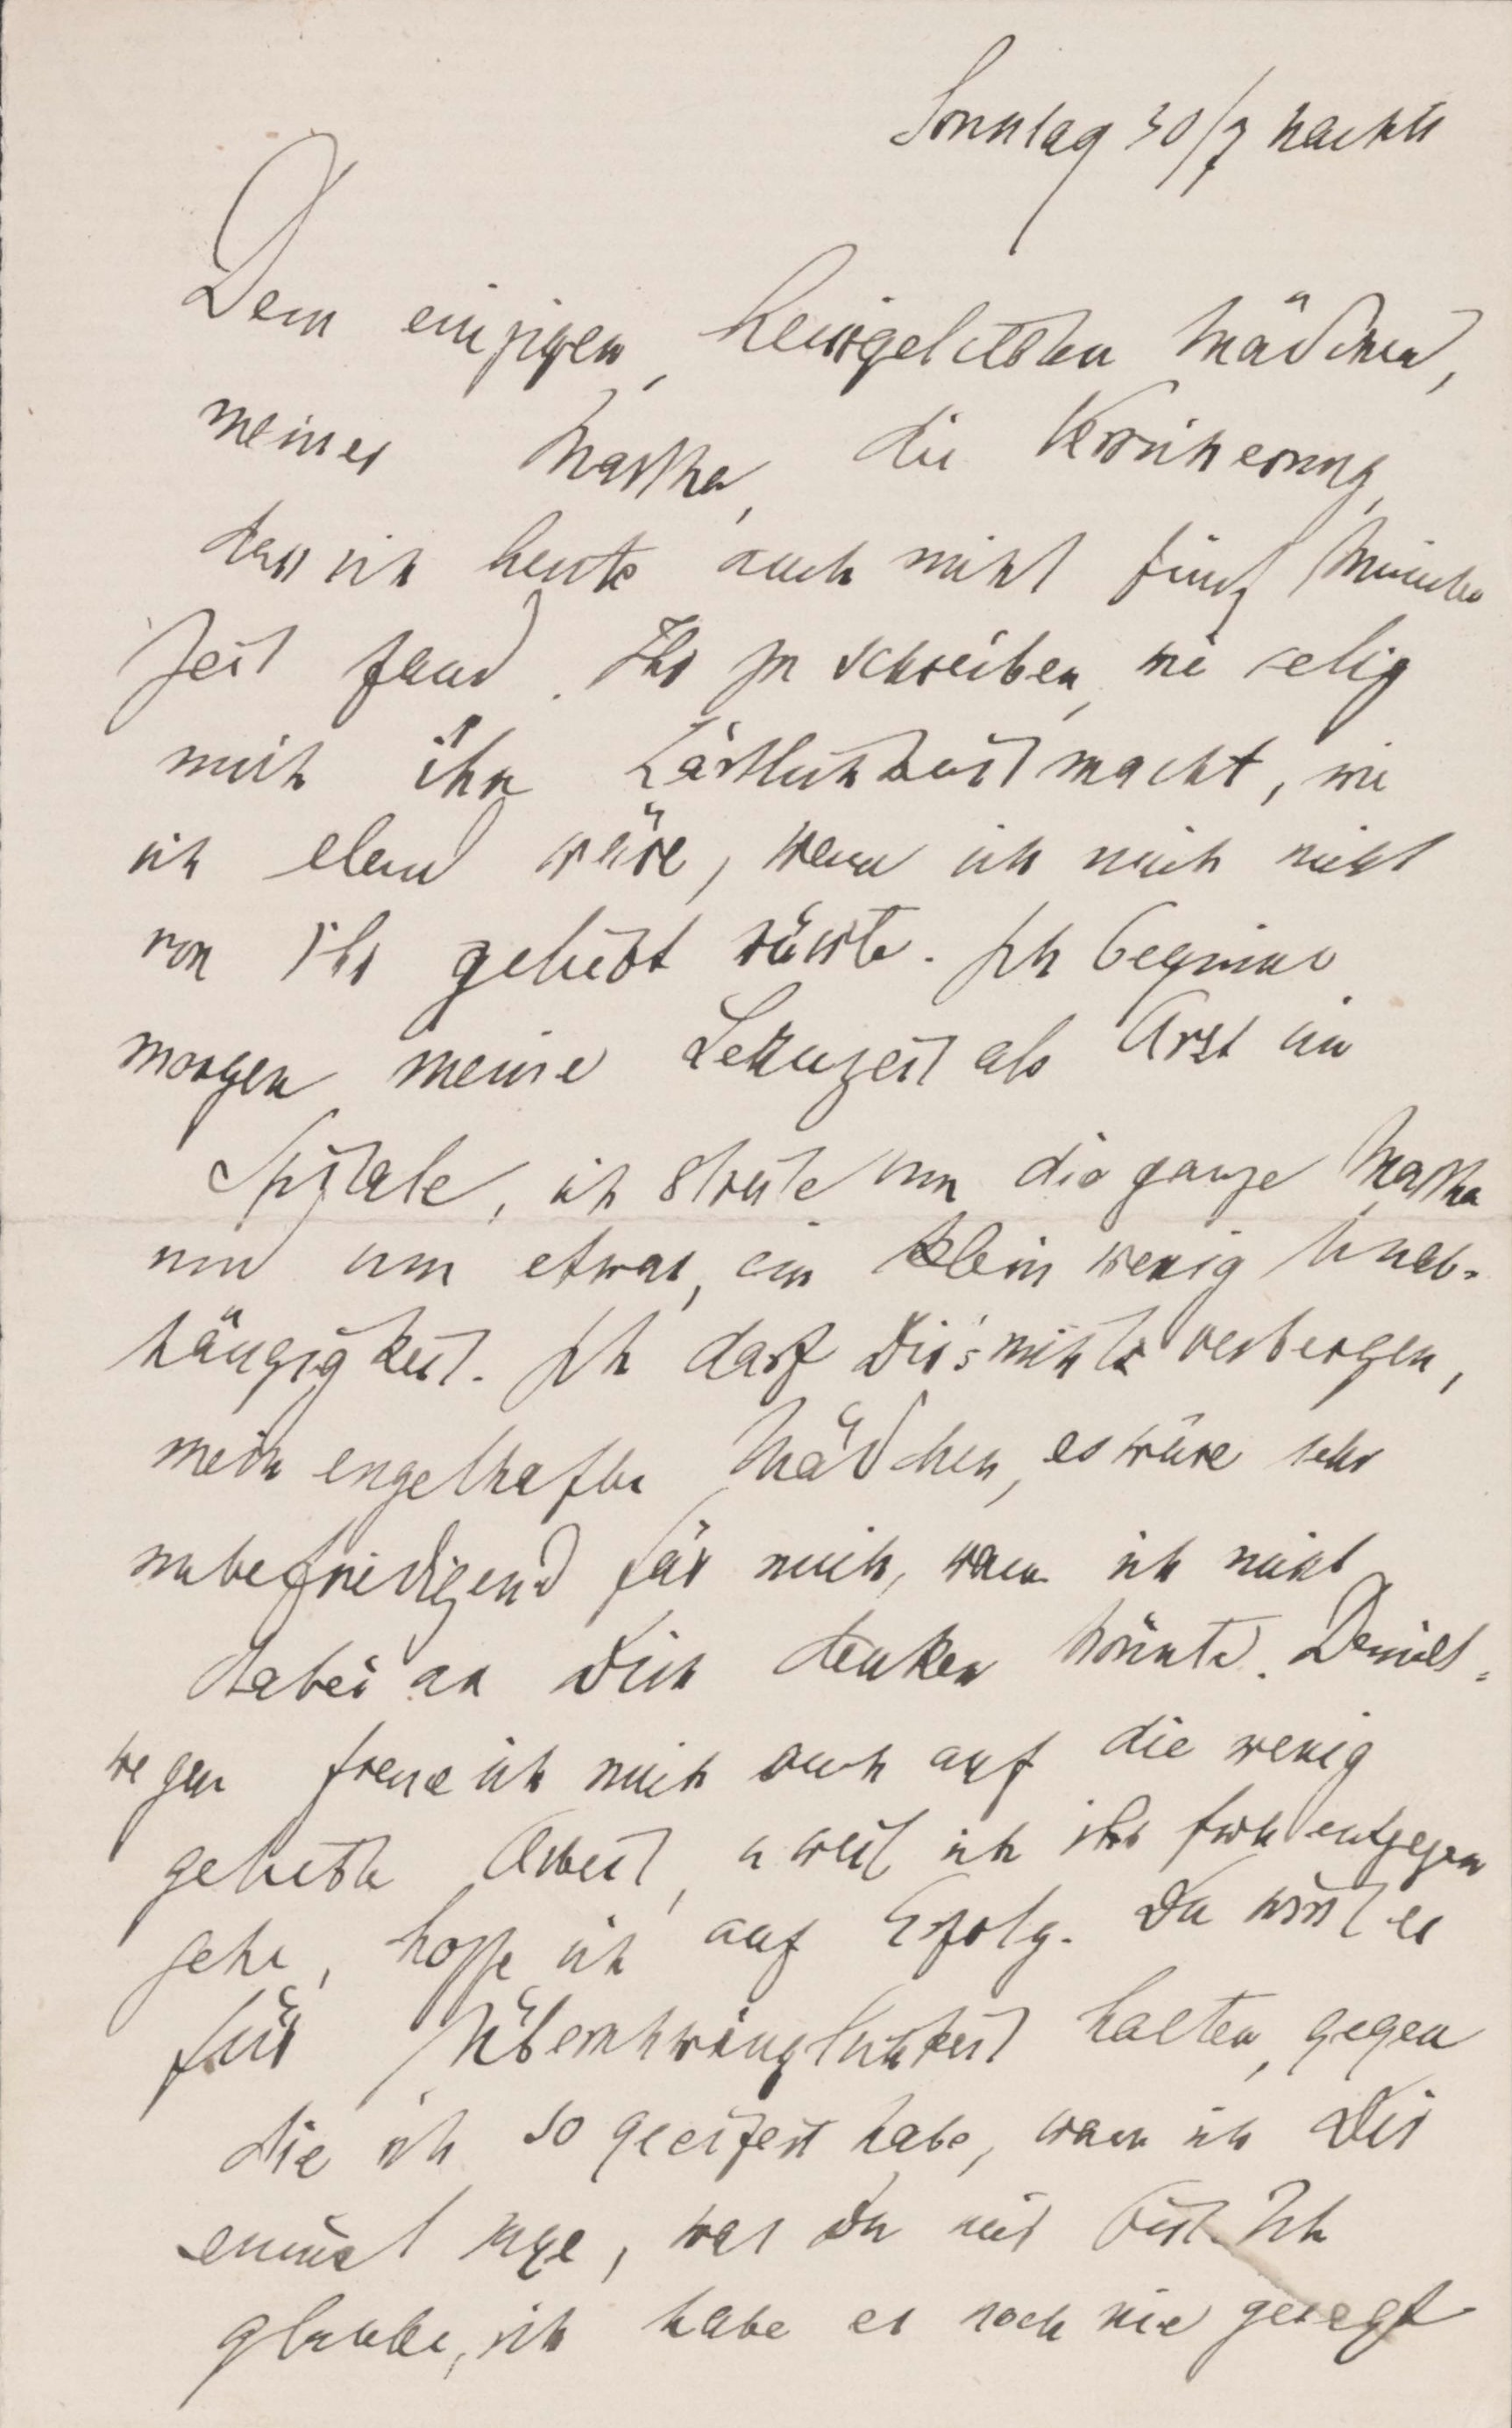 Sonntag 30/7 nachts
Dem einzigen, heissgeliebten Mädchen,
meiner Martha, die Versicherung,
dass ich heute auch nicht fünf Minuten
Zeit fand, Ihr zu schreiben, wie selig
mich ihre Zärtlichkeit macht, wie
ich elend wäre, wenn ich mich nicht
von Ihr geliebt wüsste. Ich beginne
morgen meine Lehrzeit als Arzt im
Spitale, ich strebe um die ganze Martha
und um etwas, ein klein wenig Unab-
hängigkeit. Ich darf Dir's nicht verbergen,
mein engelhaftes Mädchen, es wäre sehr
unbefriedigend für mich, wenn ich nicht
dabei an Dich denken könnte. Deinet-
wegen freue ich mich auch auf die wenig
geliebte Arbeit, u weil ich ihr froh entgegen
gehe, hoffe ich auf Erfolg. Du wirst es
für Überschwänglichkeit halten, gegen
die ich so geeifert habe, wenn ich Dir
einmal sage, was Du mir bist. Ich
glaube, ich habe es noch nie gesagt